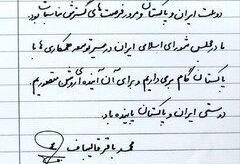 دولت ایران و پاکستان و مرور فرصت‌های گسترش مناسبات بود.
ما در مجلس شورای اسلامی ایران در مسیر توسعه همکاری‌ها با
پاکستان گام برمی‌داریم و برای آن آینده‌ی روشنی متصوریم.
دوستی ایران و پاکستان پاینده باد.
محمد باقر قالیباف